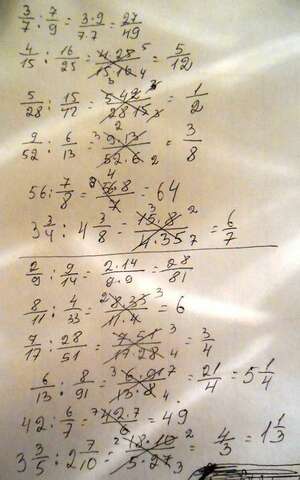 3/7 : 7/9 = 3·9/7·7 = 27/49
4/15 : 16/25 = 4·25/15·16 = 5/12
5/28 : 15/42 = 5·42/28·15 = 1/2
9/52 : 6/13 = 9·13/52·6 = 3/8
56 : 7/8 = 56·8/7 = 64
3 3/4 : 4 3/8 = 15·8/4·35 = 6/7
2/9 : 9/14 = 2·14/9·9 = 28/81
8/11 : 4/33 = 8·33/11·4 = 6
7/17 : 28/51 = 7·51/17·28 = 3/4
6/13 : 8/91 = 6·91/13·8 = 21/4 = 5 1/4
42 : 6/7 = 42·7 = 49
3 3/5 : 2 7/10 = 18·10/5·27 = 4/3 = 1 1/3